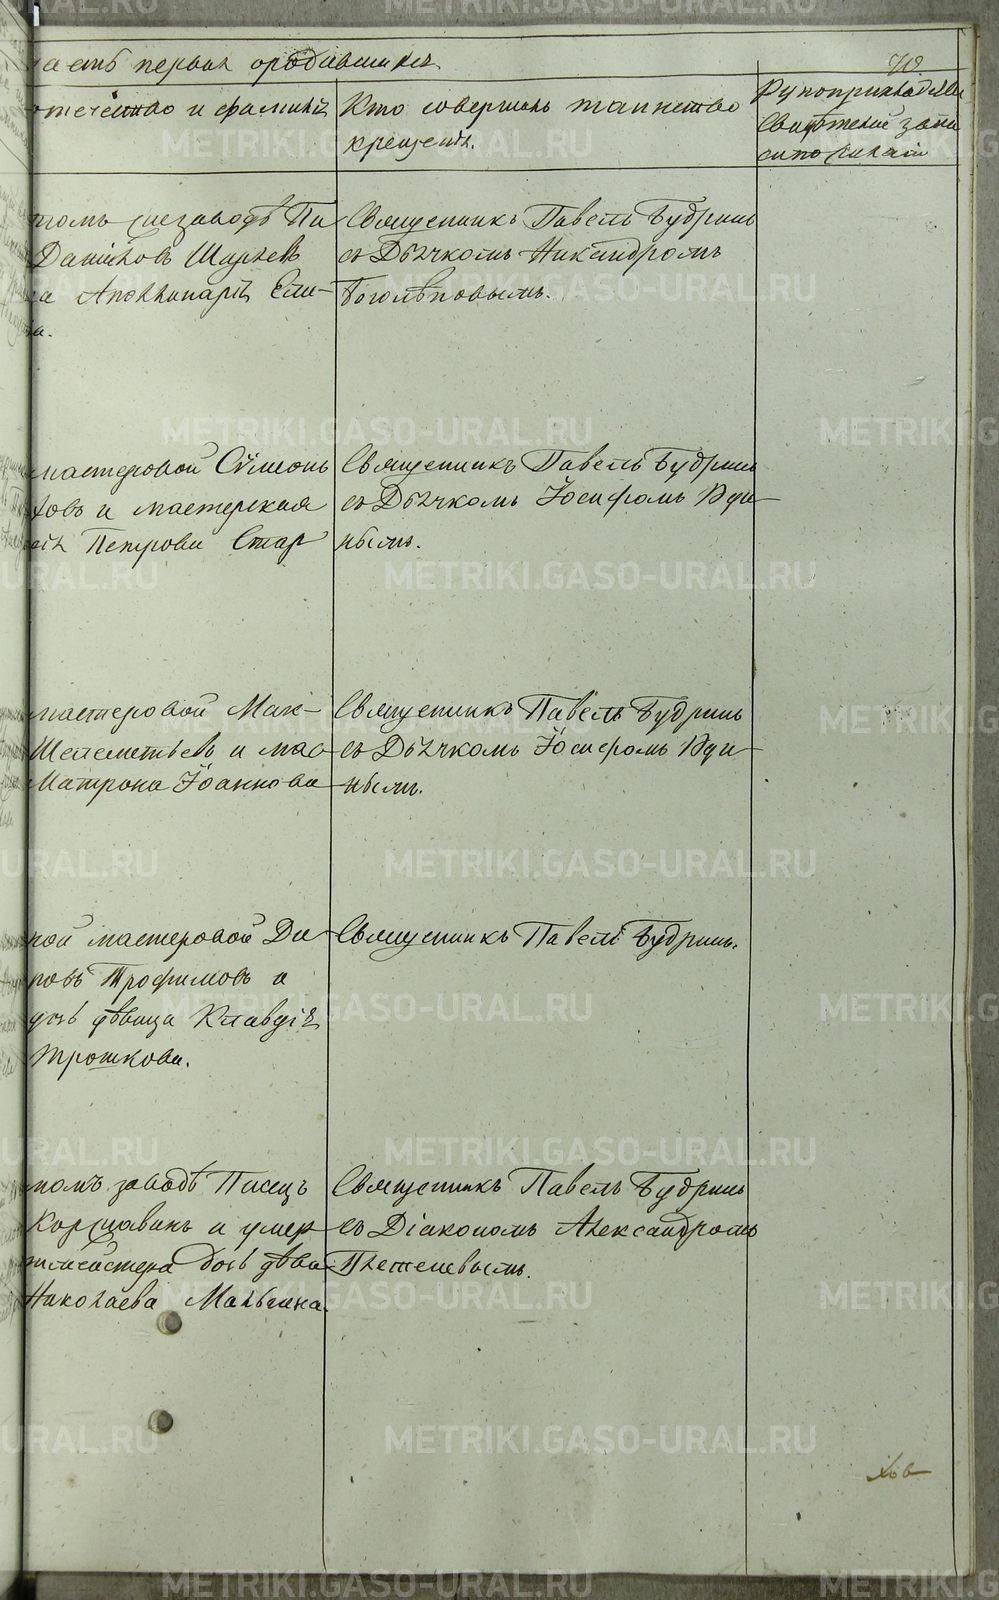 асть первая о родавшихся
70
отечество и фамилія
Кто совершалъ таинство
крещенія.
Рукоприкладства
свидѣтелей запи
си по желанію
томъ же заводѣ Па
Даниловъ Шаркев
на Аполлинарія Ели-
на.
Священникъ Павелъ Будринъ
съ Дьячкомъ Никандромъ
Боголѣповымъ.
мастеровой Сѵмеонъ
ховъ и мастерская
Петрова Стар
Священникъ Павелъ Будринъ
съ Дьячкомъ Іосифомъ Юди-
нымъ.
мастеровой Мак-
Шелементьевъ и мас-
Матрона Іоаннова
Священникъ Павелъ Будринъ
съ Дьячкомъ Іосифомъ Юди-
нымъ.
ной мастеровой Ди-
ровъ Трофимовъ и
дочь дѣвица Клавдія
Трошкова.
Священникъ Павелъ Будринъ.
томъ заводѣ Писецъ
Корщавинъ и умер
мейстера дочь дѣви-
Николаева Малыгина.
Священникъ Павелъ Будринъ
съ Діакономъ Александромъ
Плетеневымъ.
ховъ
METRIKI.GASO-URAL.RU